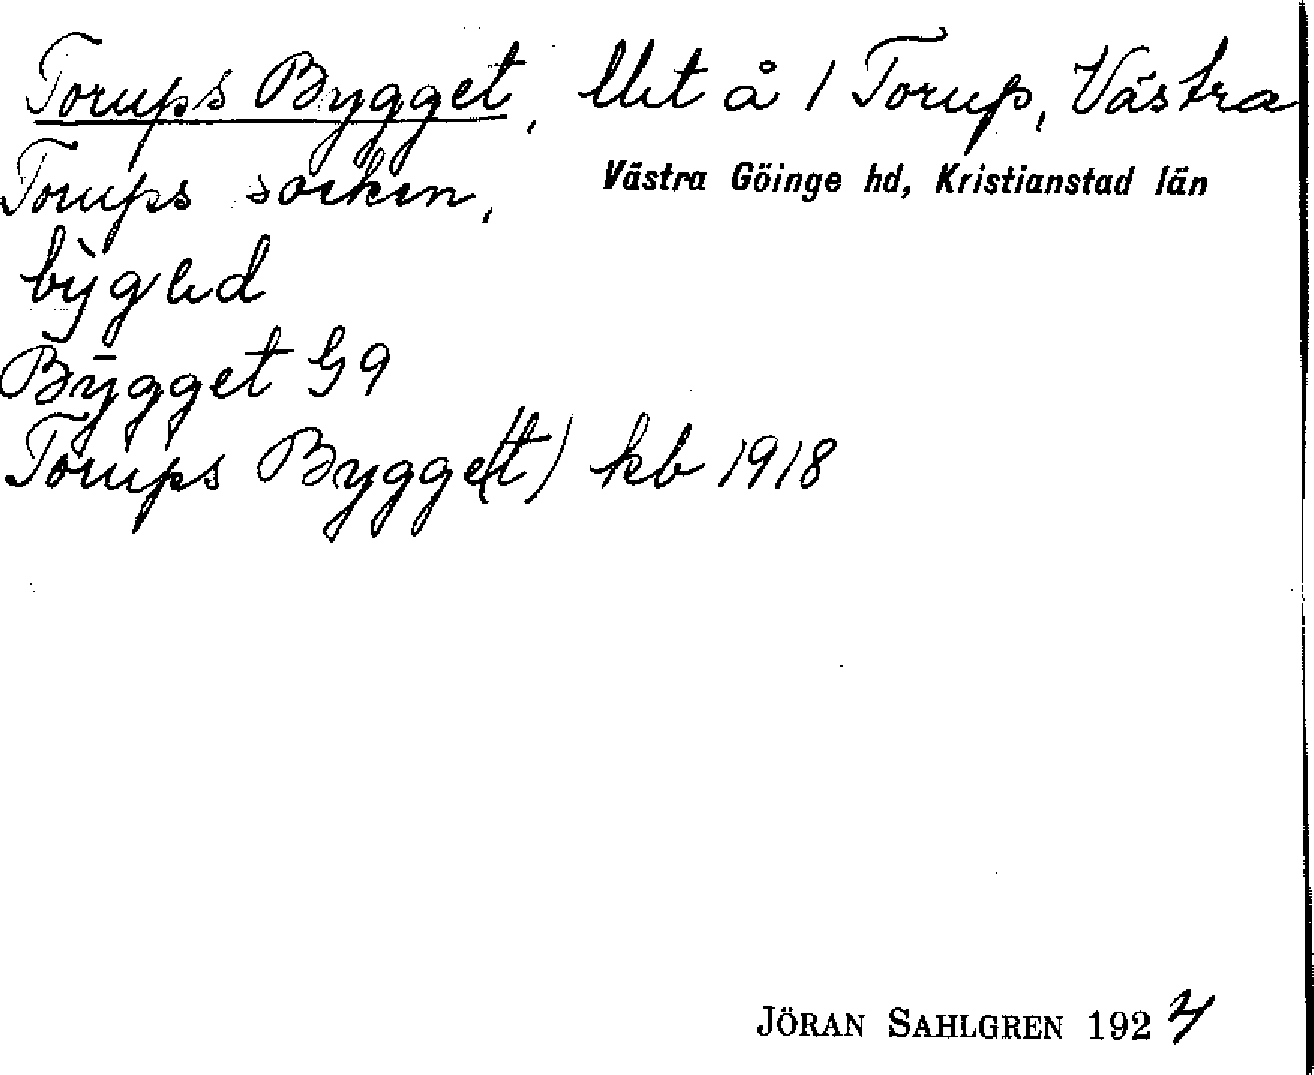 Torups Bygget, lht å 1 Torup, Västra
Torups socken, Västra Göinge hd, Kristianstad län
Bygget G9
Torups Bygge(t) kb 1918
JÖRAN SAHLGREN 1924